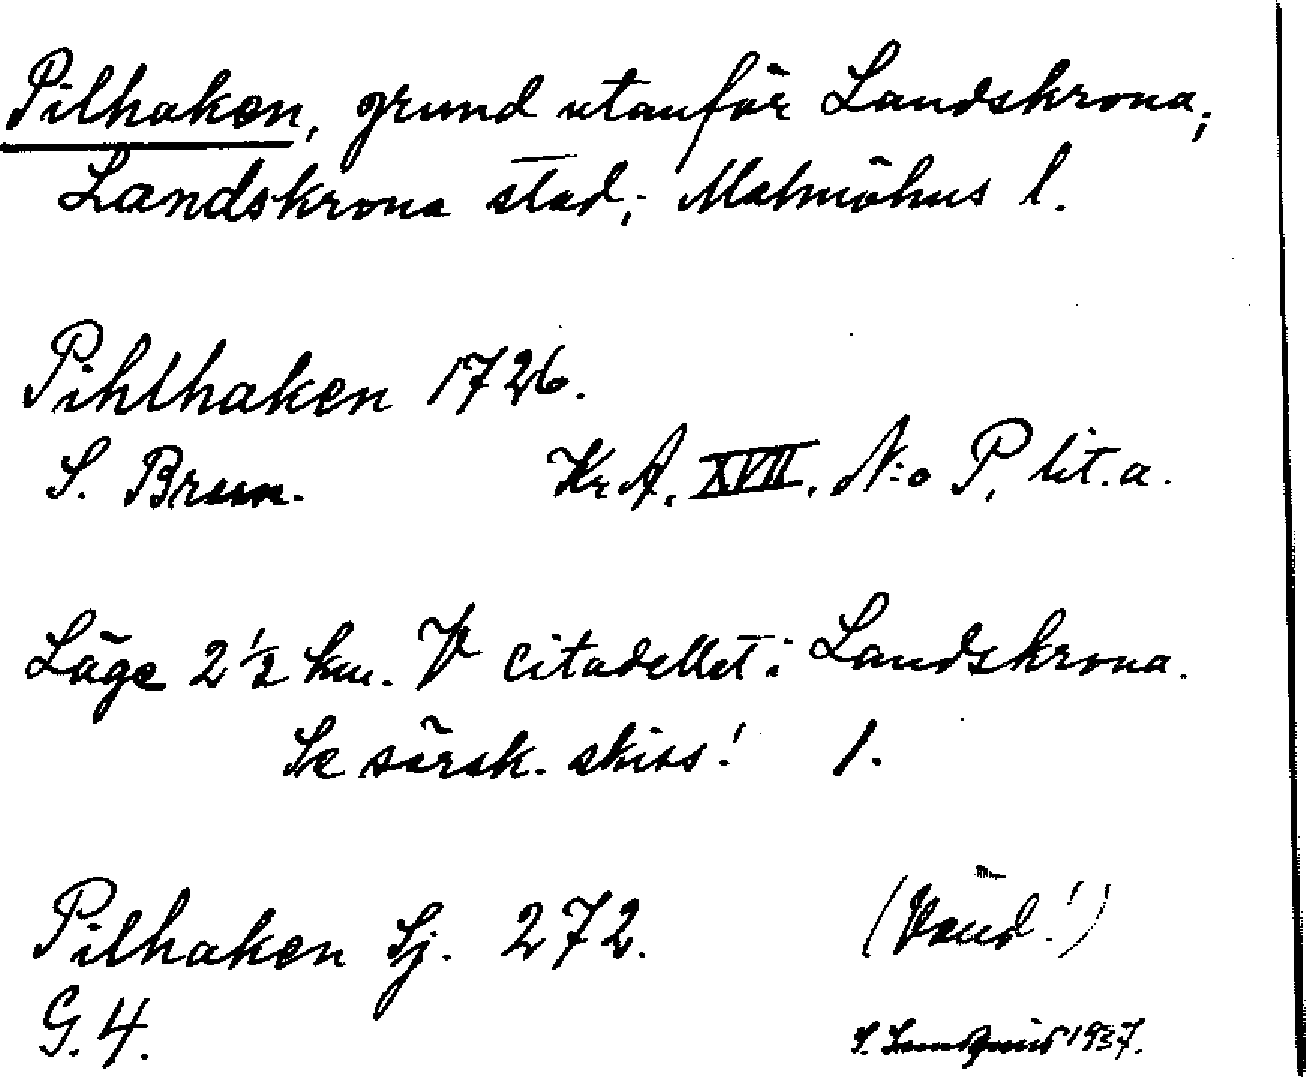 Pilhaken, grund utanför Landskrona;
Landskrona stad; Malmöhus l.
Pihlhaken 1726.
S. Brun. Kr A. XVII. N:o P, lit. a.
Läge 2 1/2 km. V citadellet i Landskrona.
Se särsk. skiss! 1.
Pilhaken Sj. 272. (Vänd!)
G. 4. S. 1937.